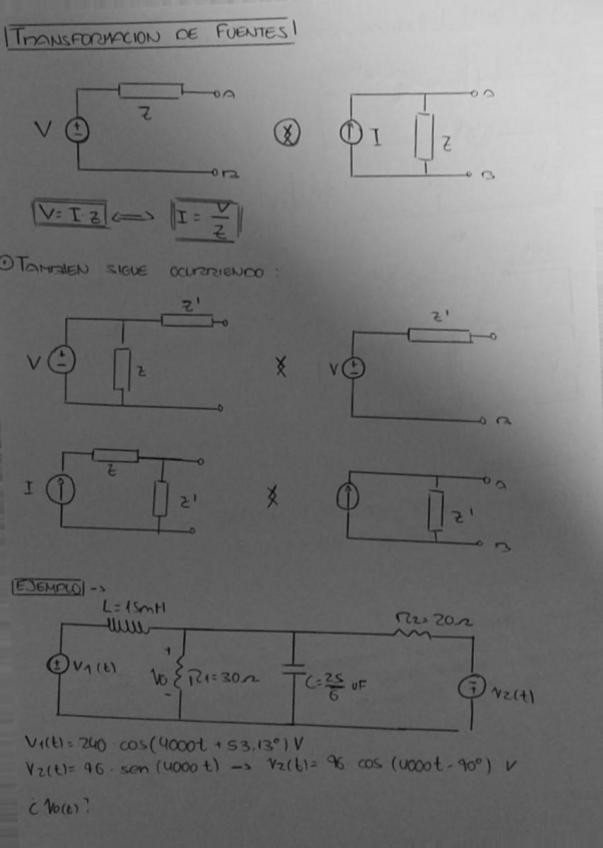 TRANSFORMACION DE FUENTES
Z
A
V
B
I
Z
A
B
V = I · Z <=> I = V/Z
TAMBIEN SIGUE OCURRIENDO :
Z'
V
Z
Z'
V
B
Z
I
Z'
A
Z'
B
EJEMPLO ->
L=15mH
R2=20Ω
V1(t)
+
Vo
-
R1=30Ω
C=25/6 uF
V2(t)
V1(t) = 240 · cos(4000t + 53.13°) V
V2(t) = 96 · sen (4000t) -> V2(t) = 96 cos (4000t - 90°) V
¿Vo(t)?